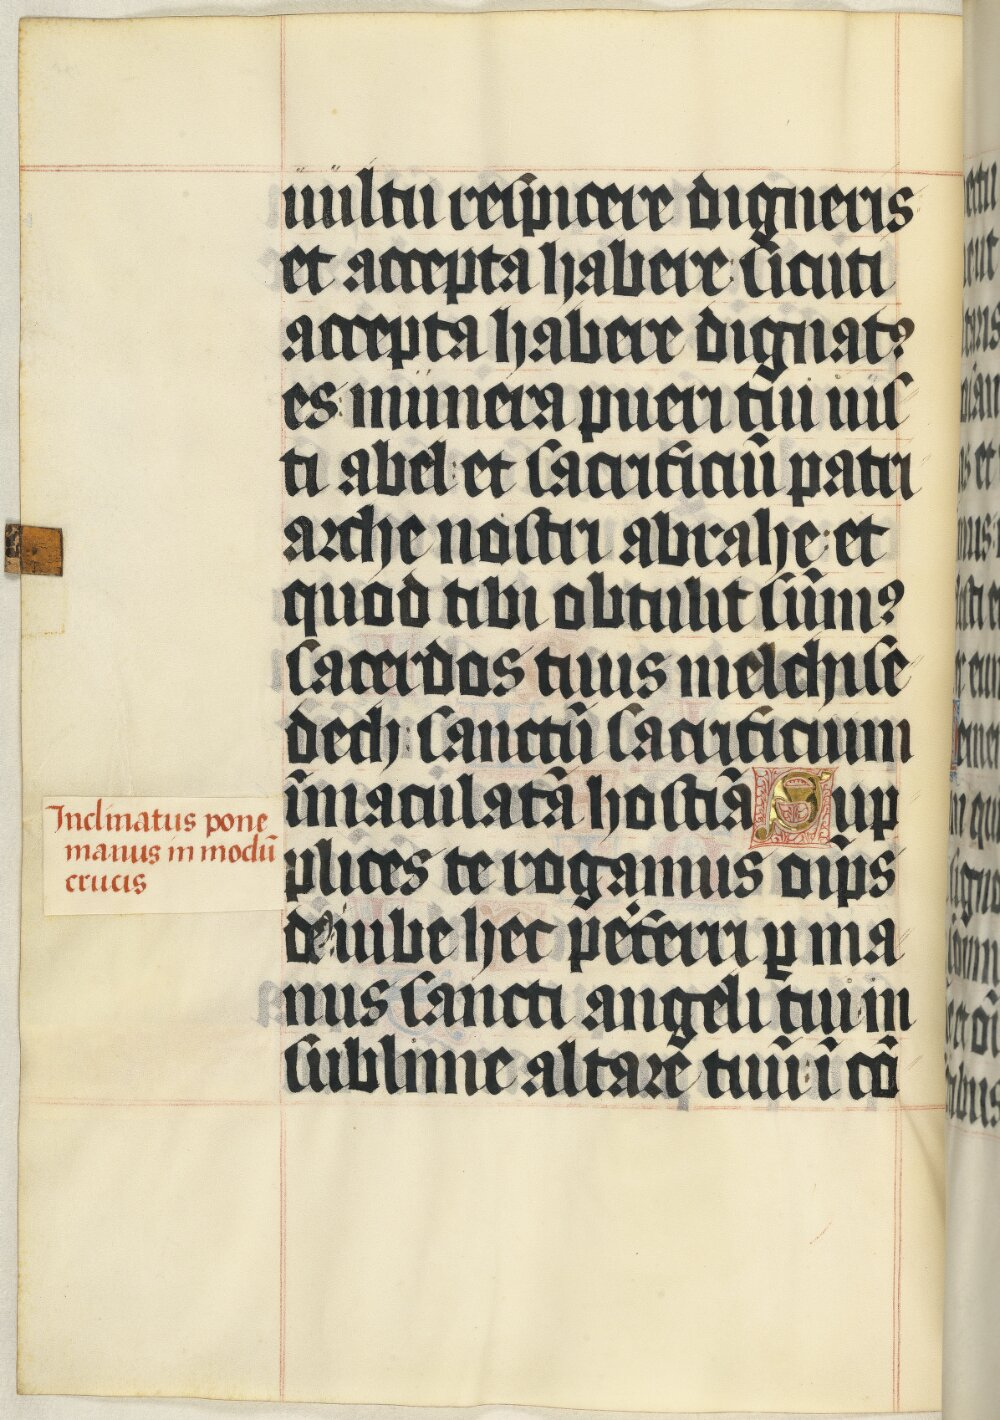 uultu respicere digneris
et accepta habere: sicuti
accepta habere dignatꝰ
es: munera pueri tui ius
ti abel: et sacrificiū patri
arche nostri abrahe: et
quod tibi obtulit sūmꝰ
sacerdos tuus melchise
dech: sanctū sacrificium
īmaculatā hostiā Sup
plices te rogamus oīps
deꝰ: iube hec pẽferri ꝑ ma
nus sancti angeli tui in
sublime altare tuū: ī cō
Inclinatus pone
manus in modū
crucis